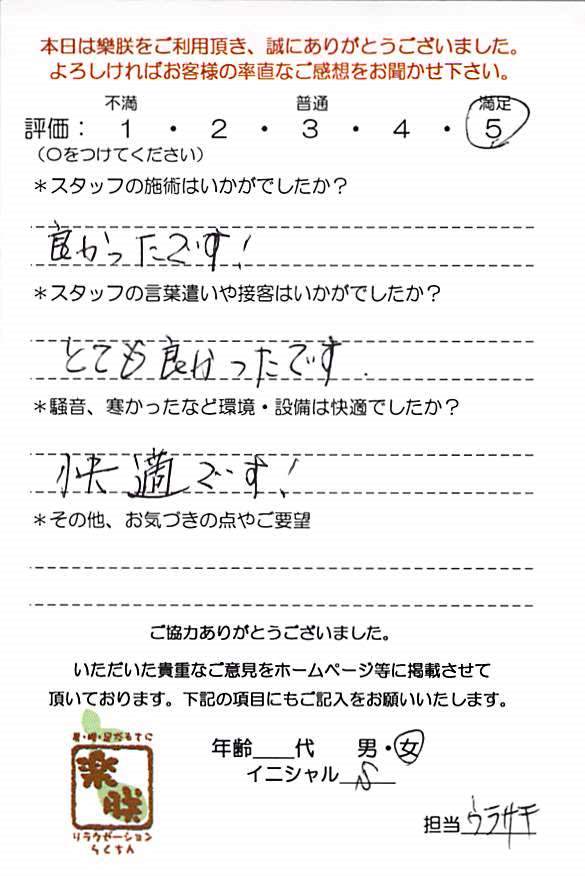 本日は樂朕をご利用頂き、誠にありがとうございました。
よろしければお客様の率直なご感想をお聞かせ下さい。
不満 普通 満足
評価： 1 ・ 2 ・ 3 ・ 4 ・ 5
（○をつけてください）
＊スタッフの施術はいかがでしたか？
良かったです！
＊スタッフの言葉遣いや接客はいかがでしたか？
とても良かったです.
＊騒音、寒かったなど環境・設備は快適でしたか？
快適です！
＊その他、お気づきの点やご要望
ご協力ありがとうございました。
いただいた貴重なご意見をホームページ等に掲載させて
頂いております。下記の項目にもご記入をお願いいたします。
年齢＿＿代 男・女
イニシャル S
担当 ウラサキ
樂朕
リラクゼーション
らくちん